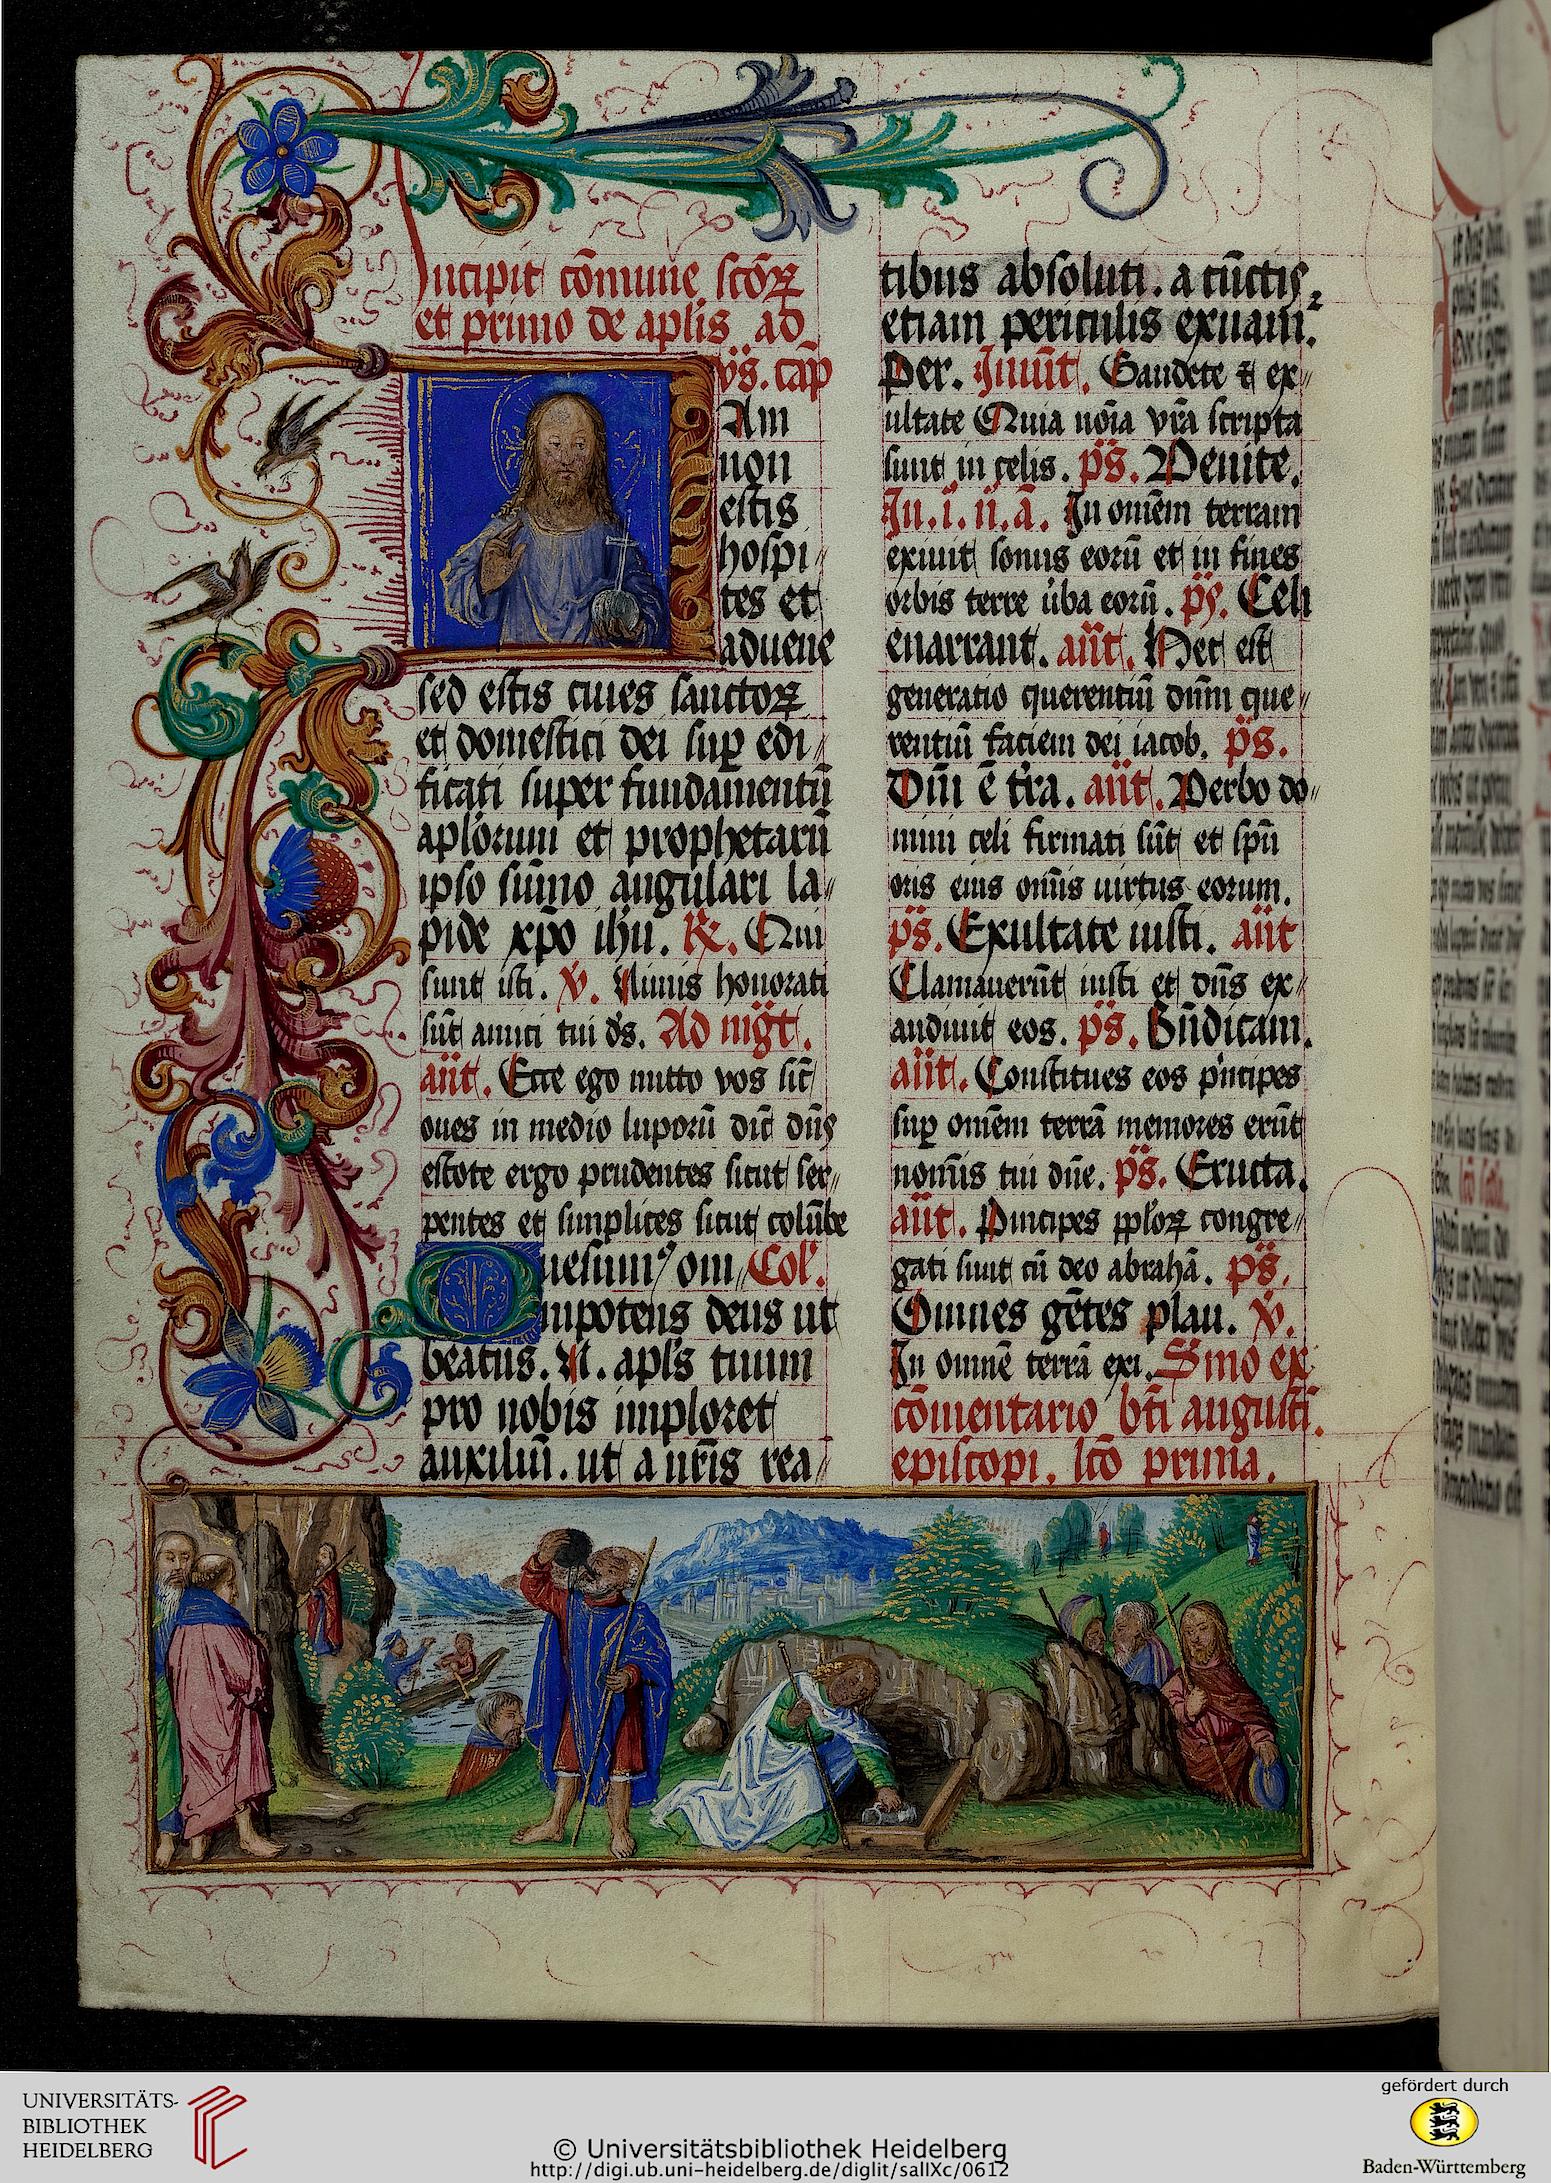 Incipit cōmune sctōꝝ
et primo de aplis ad
vs̄. cap̄
Am
non
estis
hospi⸗
tes et
aduene
sed estis ciues sanctoꝝ
et domestici dei suꝑ edi⸗
ficati super fundamentū
aplorum et prophetarū
ipso sum̄o angulari la⸗
pide xp̄o ihū. ℟. Qui
sunt isti. ℣. Nimis honorati
sūt amici tui ds̓. Ad mg̅t.
an̄t. Ecce ego mitto vos sic̄
oues in medio luporū dic̄ dn̄s
estote ergo prudentes sicut ser⸗
pentes et simplices sicut colūbe
Quesumꝰ om⸗ Col̓.
nipotens deus ut
beatus. N. apl̓s tuum
pro nobis imploret
auxiliū. ut a nr̄is rea⸗
tibus absoluti. a cūctis
etiam periculis exuam̄.
Per. Inuit̄. Gaudete ⁊ ex⸗
ultate Quia noīa vr̄a scripta
sunt in celis. ps̄. Venite.
In. i. n̄. ā. In omēm terram
exiuit sonus eorū et in fines
orbis terre u̓ba eorū. ps̄. Celi
enarrant. an̄t. Hec est
generatio querentiū dnm̄ que⸗
rentiū faciem dei iacob. ps̄.
Dn̄i ē tr̓a. an̄t. Verbo do⸗
mini celi firmati sūt et spū
oris eius om̄is uirtus eorum.
ps̄. Exultate iusti. an̄t
Clamauerūt iusti et dn̄s ex⸗
audiuit eos. ps̄. Bn̄dicam.
an̄t. Constitues eos p̓ncipes
suꝑ omēm terrā memores erūt
nomīs tui dn̄e. ps̄. Eructa.
an̄t. Principes ppl̓oꝝ congre⸗
gati sunt cū deo abrahā. ps̄.
Omnes gētes plau. ℣.
In omnē terrā exi. Smo ex
cōmentario bt̄i augusti
episcopi. lc̄o prima.
UNIVERSITÄTS-
BIBLIOTHEK
HEIDELBERG
© Universitätsbibliothek Heidelberg
http://digi.ub.uni-heidelberg.de/diglit/salIXc/0612
gefördert durch
Baden-Württemberg